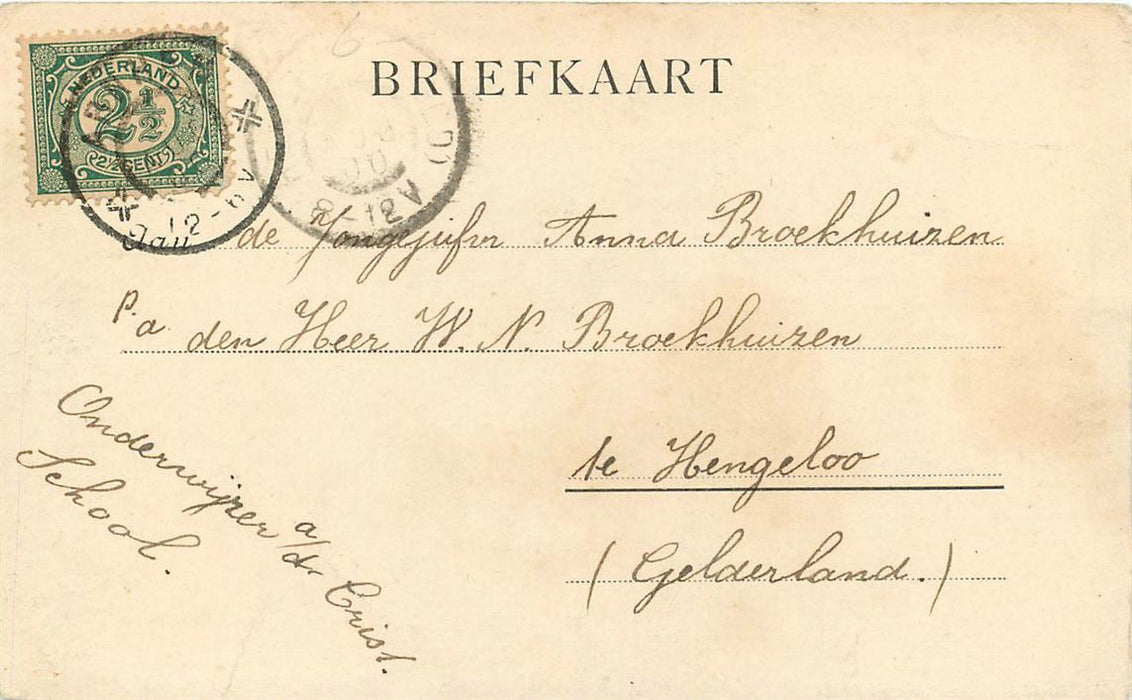 BRIEFKAART
NEDERLAND
2½
2½ CENT
12-6V
8-12V
de Jongejufvr Anna Broekhuizen
p.a den Heer W. N. Broekhuizen
te Hengeloo
(Gelderland.)
Onderwijzer a/dr Crist.
School.